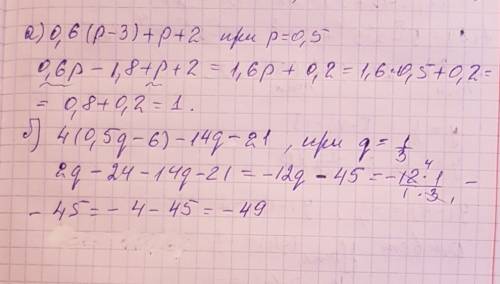 а) 0,6(p-3)+p+2 при p=0,5
0,6p-1,8+p+2=1,6p+0,2=1,6·0,5+0,2=
=0,8+0,2=1.
б) 4(0,5q-6)-14q-21, при q=1/3
2q-24-14q-21=-12q-45=-12·1/1·3 4 -
-45=-4-45=-49